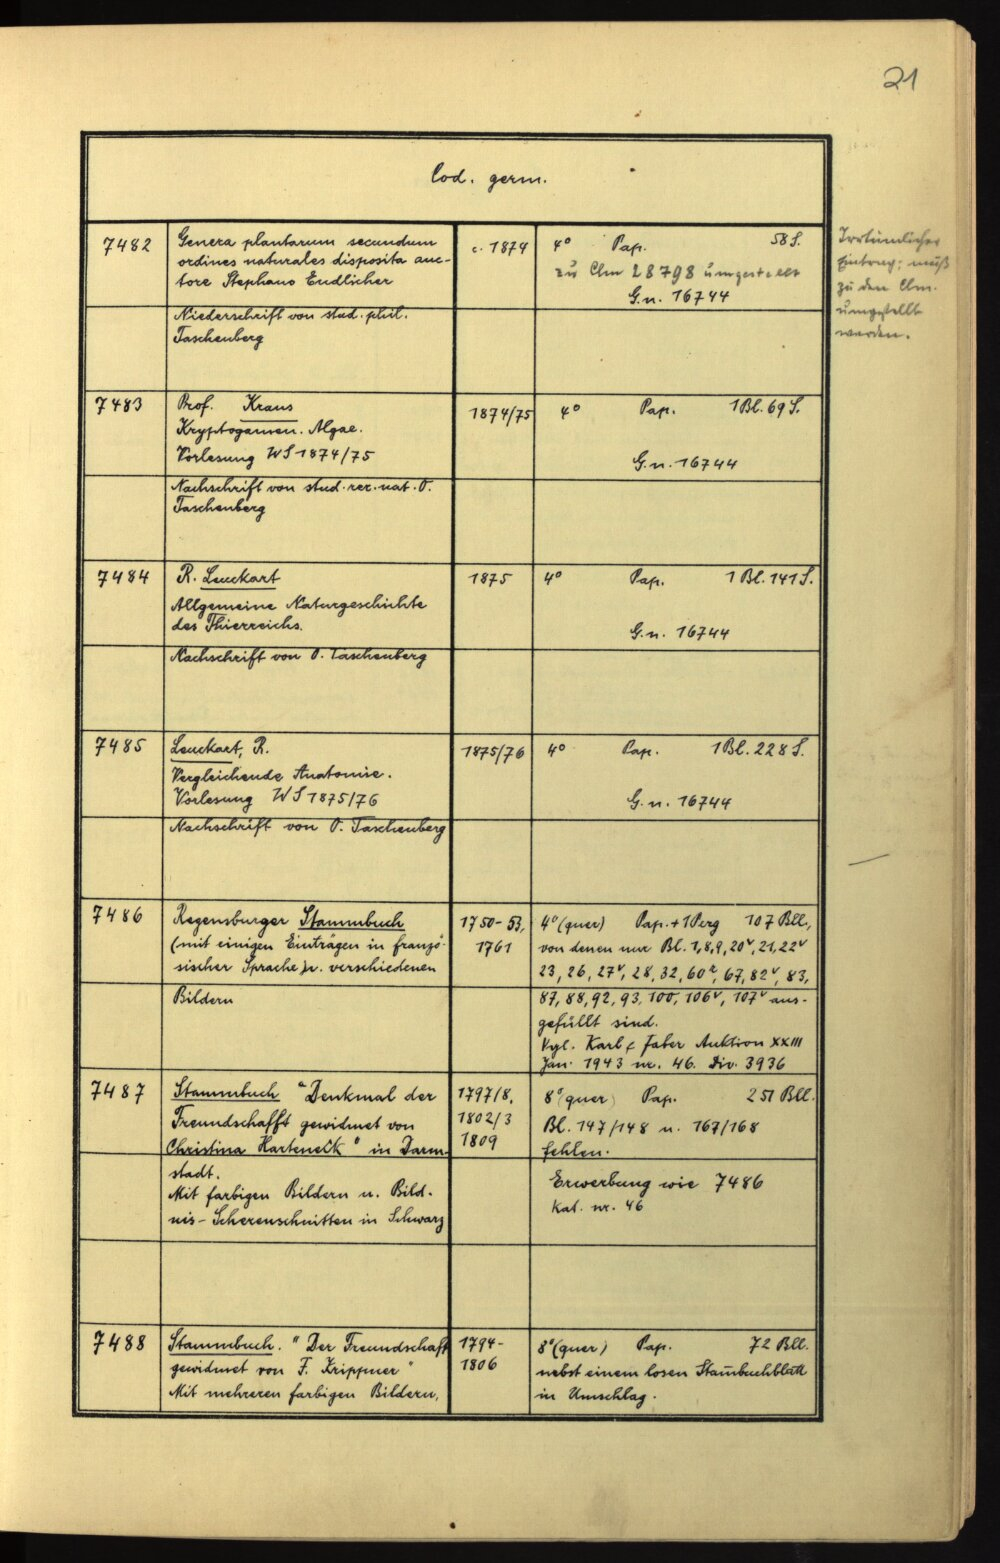 21
Cod. germ.
7482
Genera plantarum secundum
ordines naturales disposita auc-
tore Stephano Endlicher
Niederschrift von stud. phil.
Taschenberg
c. 1874
4° Pap. 58 S.
zu Clm 28798 umgestellt
G.n. 16744
Irrtümlicher
Eintrag; muß
zu den Clm.
umgestellt
werden.
7483
Prof. Kraus
Kryptogamen. Algae.
Vorlesung WS 1874/75
Nachschrift von stud. rer. nat. O.
Taschenberg
1874/75
4° Pap. 1 Bl. 69 S.
G.n. 16744
7484
R. Leuckart
Allgemeine Naturgeschichte
des Thierreichs.
Nachschrift von O. Taschenberg
1875
4° Pap. 1 Bl. 141 S.
G.n. 16744
7485
Leuckart, R.
Vergleichende Anatomie.
Vorlesung WS 1875/76
Nachschrift von O. Taschenberg
1875/76
4° Pap. 1 Bl. 228 S.
G.n. 16744
7486
Regensburger Stammbuch
(mit einigen Einträgen in franzö-
sischer Sprache) u. verschiedenen
Bildern
1750-53,
1761
4° (quer) Pap. + 1 Perg 107 Bll.,
von denen nur Bl. 1, 8, 9, 20ᵛ, 21, 22ᵛ
23, 26, 27ᵛ, 28, 32, 60ʳ, 67, 82ᵛ, 83,
87, 88, 92, 93, 100, 106ᵛ, 107ᵛ aus-
gefüllt sind.
Vgl. Karl & Faber Auktion XXIII
Jan. 1943 nr. 46. Div. 3936
7487
Stammbuch "Denkmal der
Freundschafft gewidmet von
Christina Harteneck" in Darm-
stadt.
Mit farbigen Bildern u. Bild-
nis-Scherenschnitten in Schwarz
1797/8,
1802/3
1809
8° (quer) Pap. 251 Bll.
Bl. 147/148 u. 167/168
fehlen.
Erwerbung wie 7486
Kat. nr. 46
7488
Stammbuch. "Der Freundschaft
gewidmet von F. Krippner"
Mit mehreren farbigen Bildern,
1794-
1806
8° (quer) Pap. 72 Bll.
nebst einem losen Stam̄buchblatt
in Umschlag.